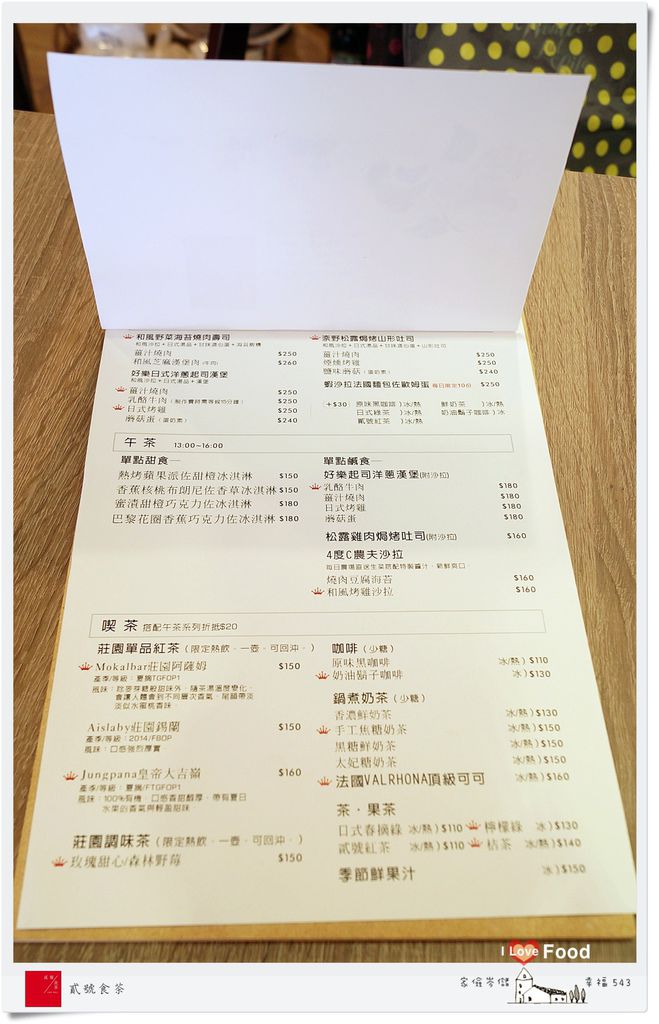 和風野菜海苔燒肉壽司
薑汁燒肉 $250
和風芝麻漢堡肉(牛肉) $260
好樂日式洋蔥起司漢堡
和風沙拉+日式湯品+漢堡
薑汁燒肉 $250
乳酪牛肉 $250
日式烤雞 $250
蘑菇蛋(蛋奶素) $240
京野松露焗烤山形吐司
薑汁燒肉 $250
煙燻烤雞 $250
鹽味蘑菇(蛋奶素) $240
蝦沙拉法國麵包佐歐姆蛋 每日限定10份 $250
+$30 原味黑咖啡)冰/熱 鮮奶茶)冰/熱
日式綠茶)冰/熱 奶油鬍子咖啡)冰
貳號紅茶)冰/熱
午茶 13:00~16:00
單點甜食
熱烤蘋果派佐甜橙冰淇淋 $150
香蕉核桃布朗尼佐香草冰淇淋 $150
蜜漬甜橙巧克力佐冰淇淋 $180
巴黎花圈香蕉巧克力佐冰淇淋 $180
單點鹹食
好樂起司洋蔥漢堡(附沙拉)
乳酪牛肉 $180
薑汁燒肉 $180
日式烤雞 $180
蘑菇蛋 $180
松露雞肉焗烤吐司(附沙拉) $160
4度C農夫沙拉
每日農場直送生菜搭配特製醬汁，新鮮爽口。
燒肉豆腐海苔 $160
和風烤雞沙拉 $160
喫茶 搭配午茶系列折抵$20
莊園單品紅茶(限定熱飲，一壺，可回沖。)
Mokalbar莊園阿薩姆 $150
產季/等級：夏摘/TGFOP1
風味：除麥芽糖般甜味外，隨茶湯溫度變化，
會讓人體會到不同層次香氣，尾韻帶淡
淡似水蜜桃香味
Aislaby莊園錫蘭 $150
產季/等級：2014/FBOP
風味：口感強烈厚實
Jungpana皇帝大吉嶺 $160
產季/等級：夏摘/FTGFOP1
風味：100%有機，口感香甜醇厚，帶有夏日
水果的香氣與輕盈甜味
莊園調味茶(限定熱飲，一壺，可回沖。)
玫瑰甜心/森林野莓 $150
咖啡(少糖)
原味黑咖啡 冰/熱)$110
奶油鬍子咖啡 冰)$130
鍋煮奶茶(少糖)
香濃鮮奶茶 冰/熱)$130
手工焦糖奶茶 冰/熱)$150
黑糖鮮奶茶 冰/熱)$150
太妃糖奶茶 冰/熱)$150
法國VALRHONA頂級可可 冰/熱)$160
茶・果茶
日式春摘綠 冰/熱)$110 檸檬綠 冰)$130
貳號紅茶 冰/熱)$110 桔茶 冰/熱)$140
季節鮮果汁 冰)$150
I Love Food
貳號食茶
幸福543